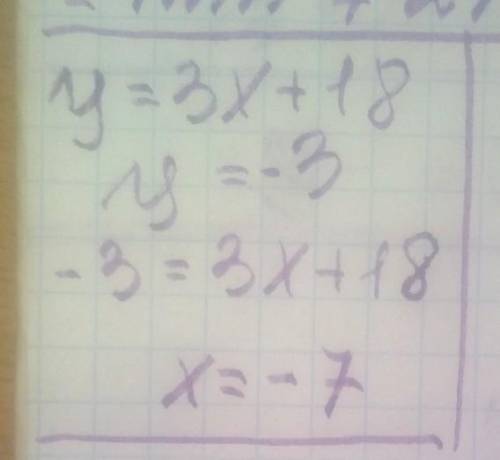 y = 3x + 18
y = -3
-3 = 3x + 18
x = -7